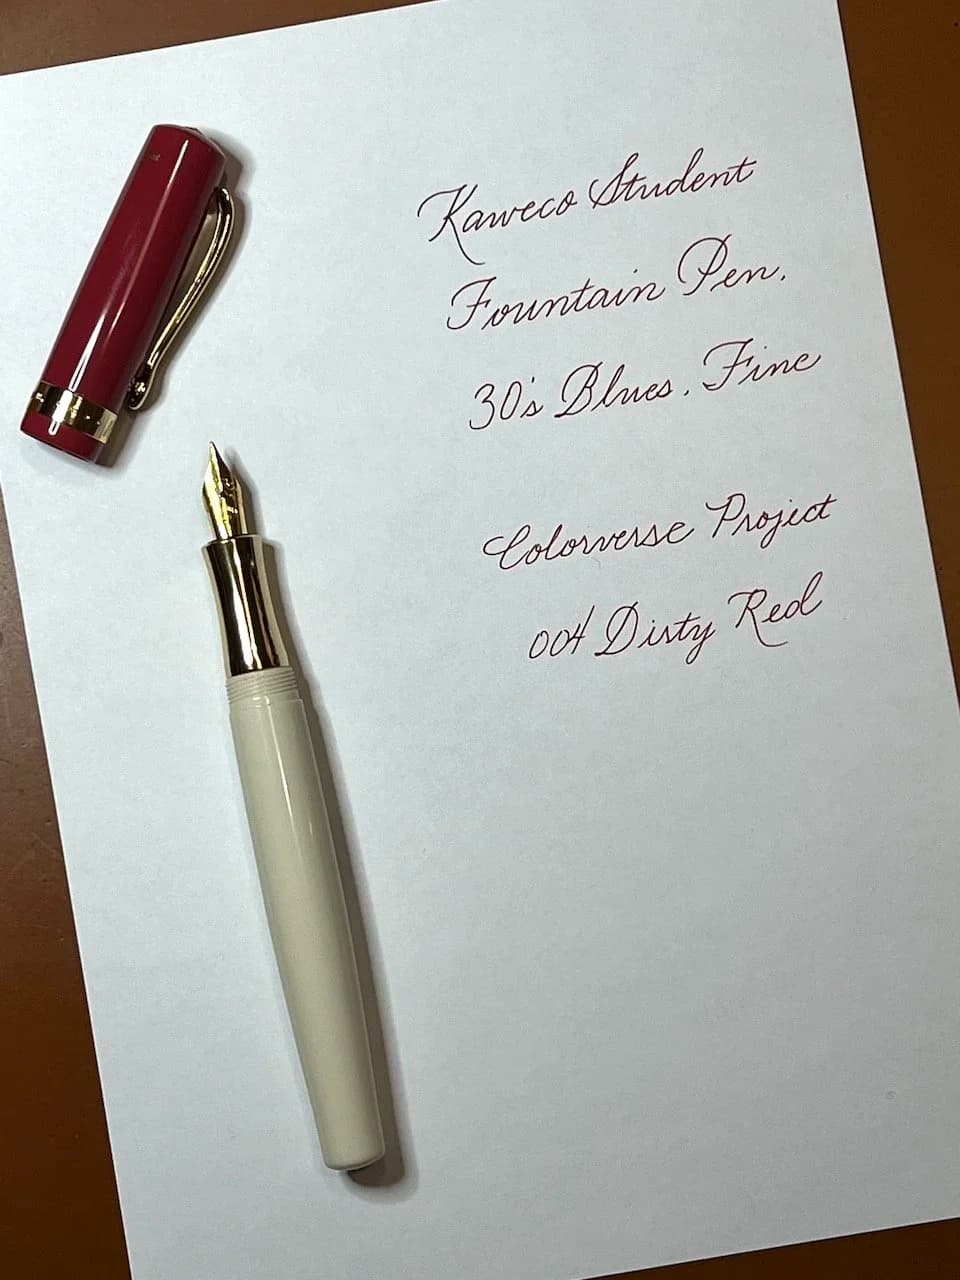 Kaweco Student
Fountain Pen.
30's Blues. Fine
Colorverse Project
004 Dirty Red